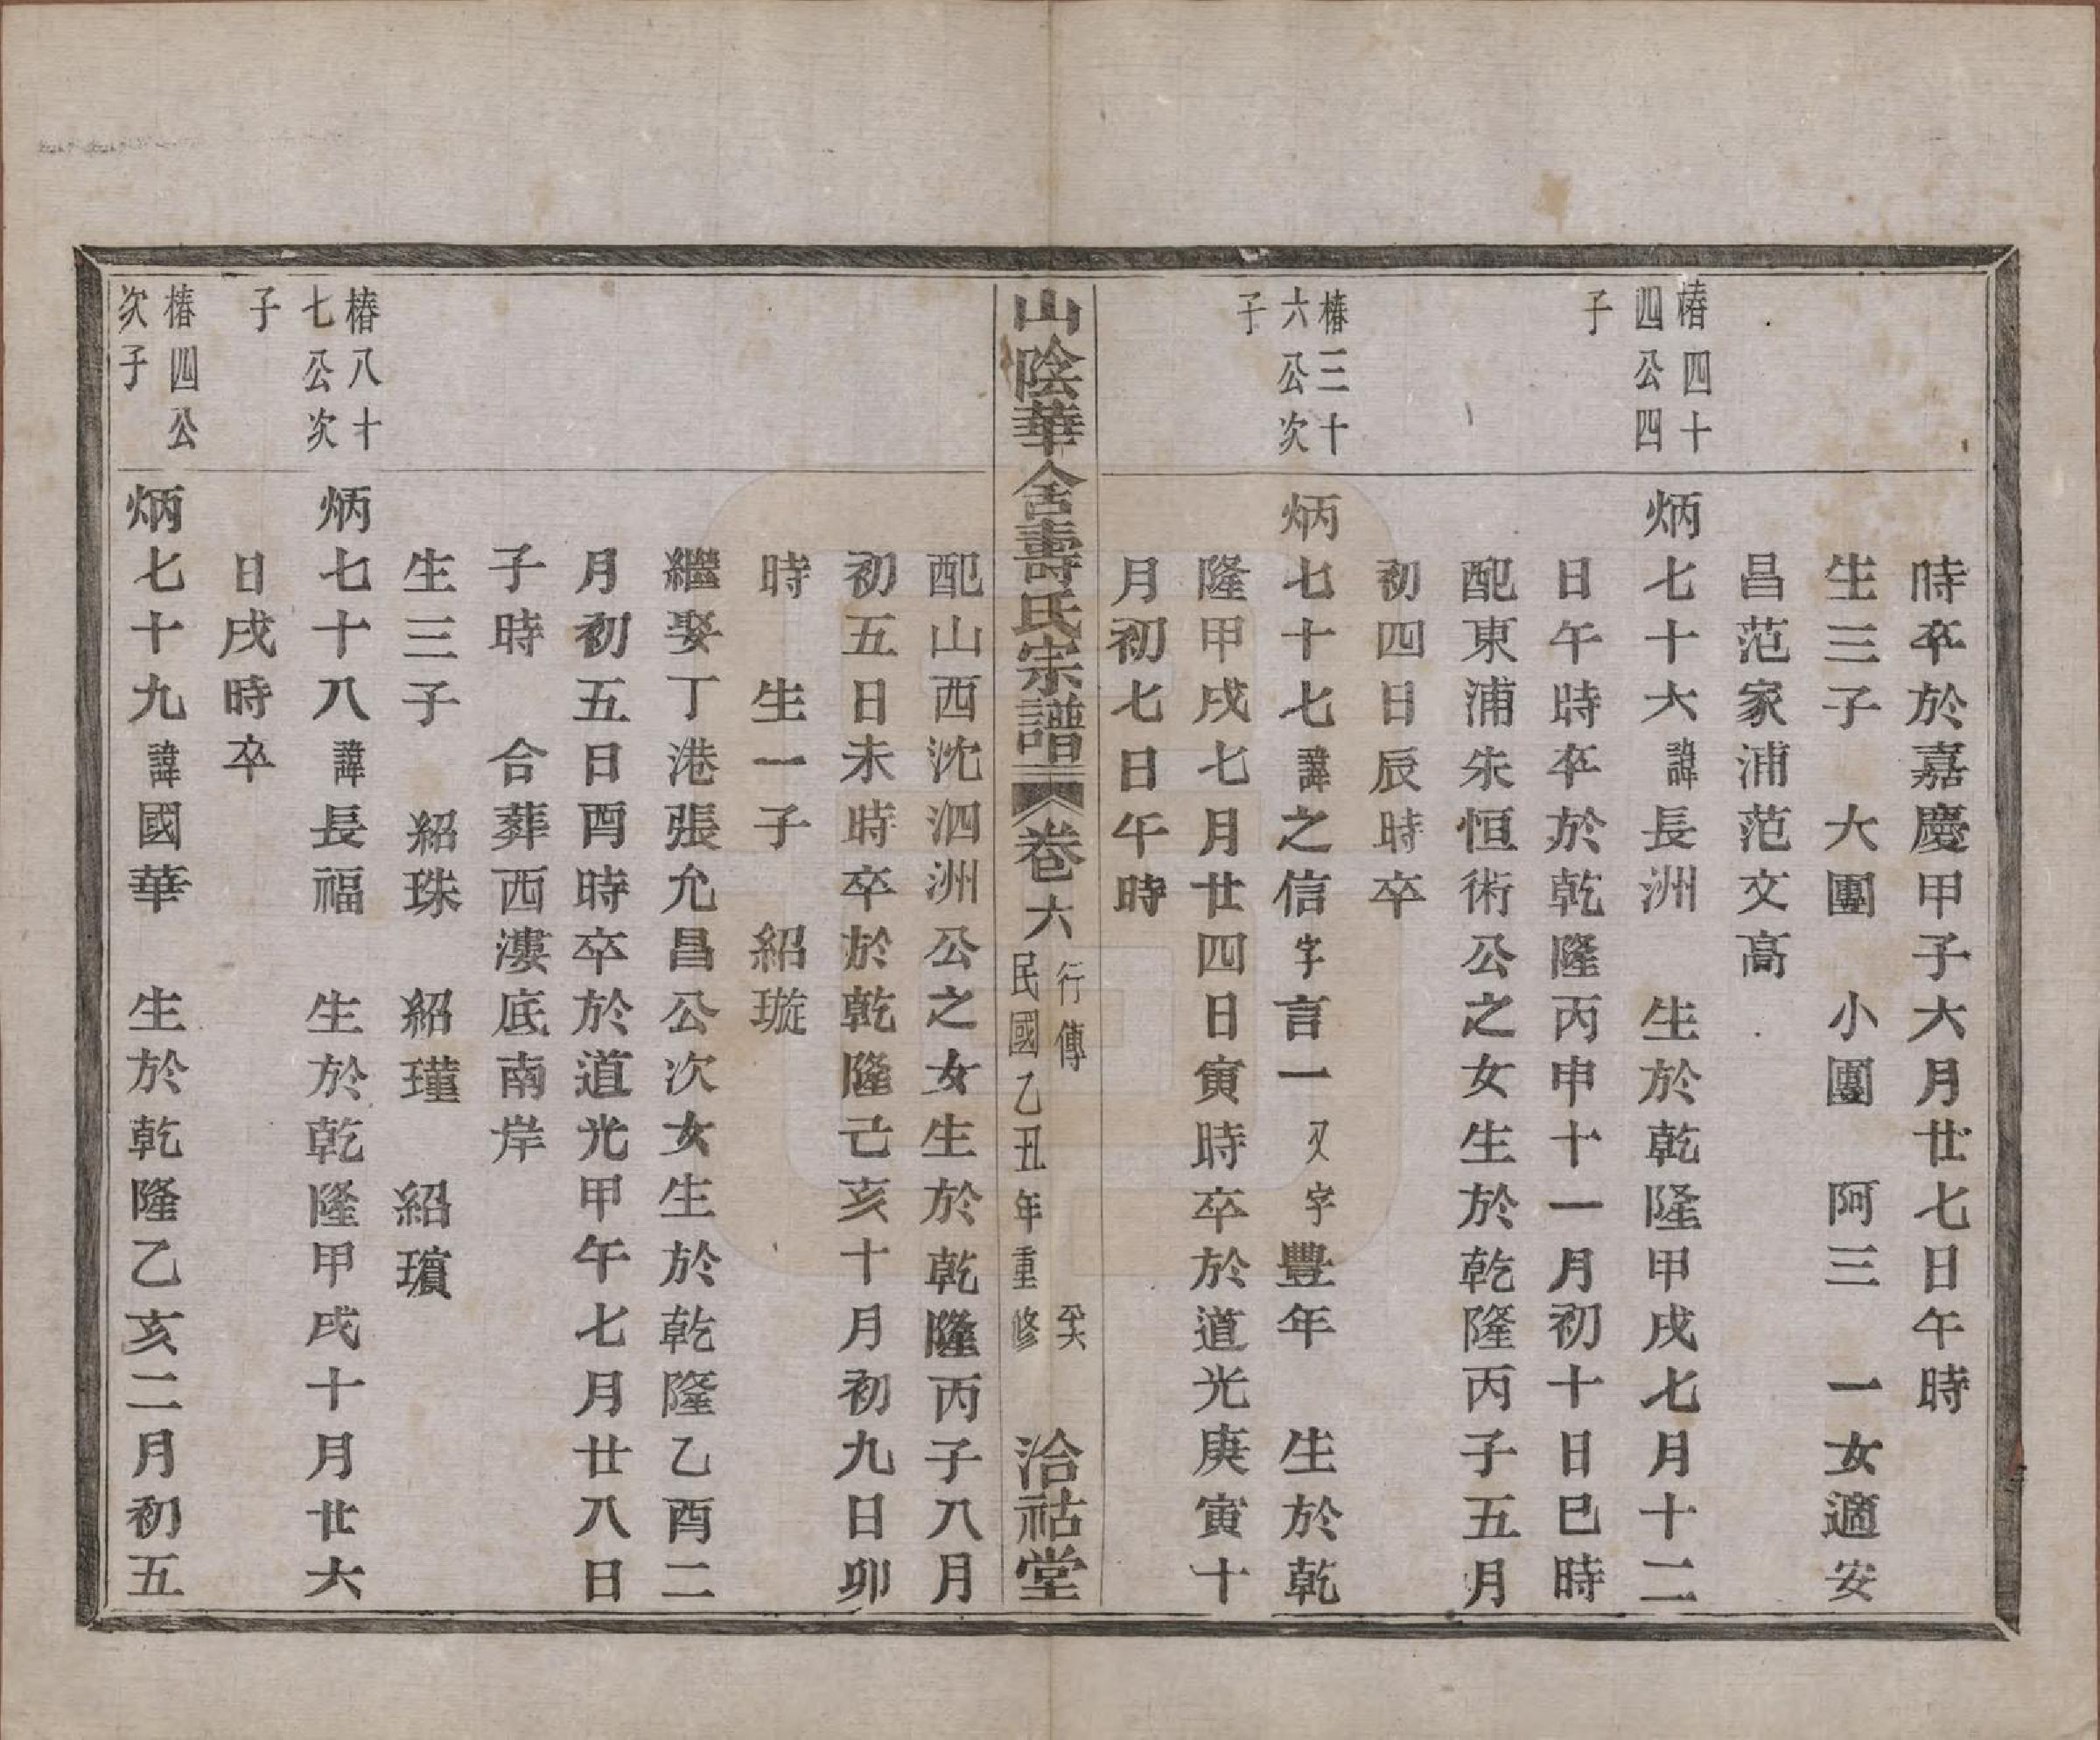 時卒於嘉慶甲子六月廿七日午時
生三子 大團 小團 阿三 一女適安
昌范家浦范文高
椿四十
四公四
子
炳七十六諱長洲 生於乾隆甲戌七月十二
日午時卒於乾隆丙申十一月初十日巳時
配東浦朱恒術公之女生於乾隆丙子五月
初四日辰時卒
椿三十
六公次
子
炳七十七諱之信字言一又字豐年 生於乾
隆甲戌七月廿四日寅時卒於道光庚寅十
月初七日午時
山陰華舍壽氏宗譜 卷六 行傳 民國乙丑年重修 洽祜堂
配山西沈泗洲公之女生於乾隆丙子八月
初五日未時卒於乾隆己亥十月初九日卯
時 生一子 紹璇
繼娶丁港張允昌公次女生於乾隆乙酉二
月初五日酉時卒於道光甲午七月廿八日
子時 合葬西漊底南岸
生三子 紹珠 紹瑾 紹璸
椿八十
七公次
子
炳七十八諱長福 生於乾隆甲戌十月廿六
日戌時卒
椿四公
次子
炳七十九諱國華 生於乾隆乙亥二月初五